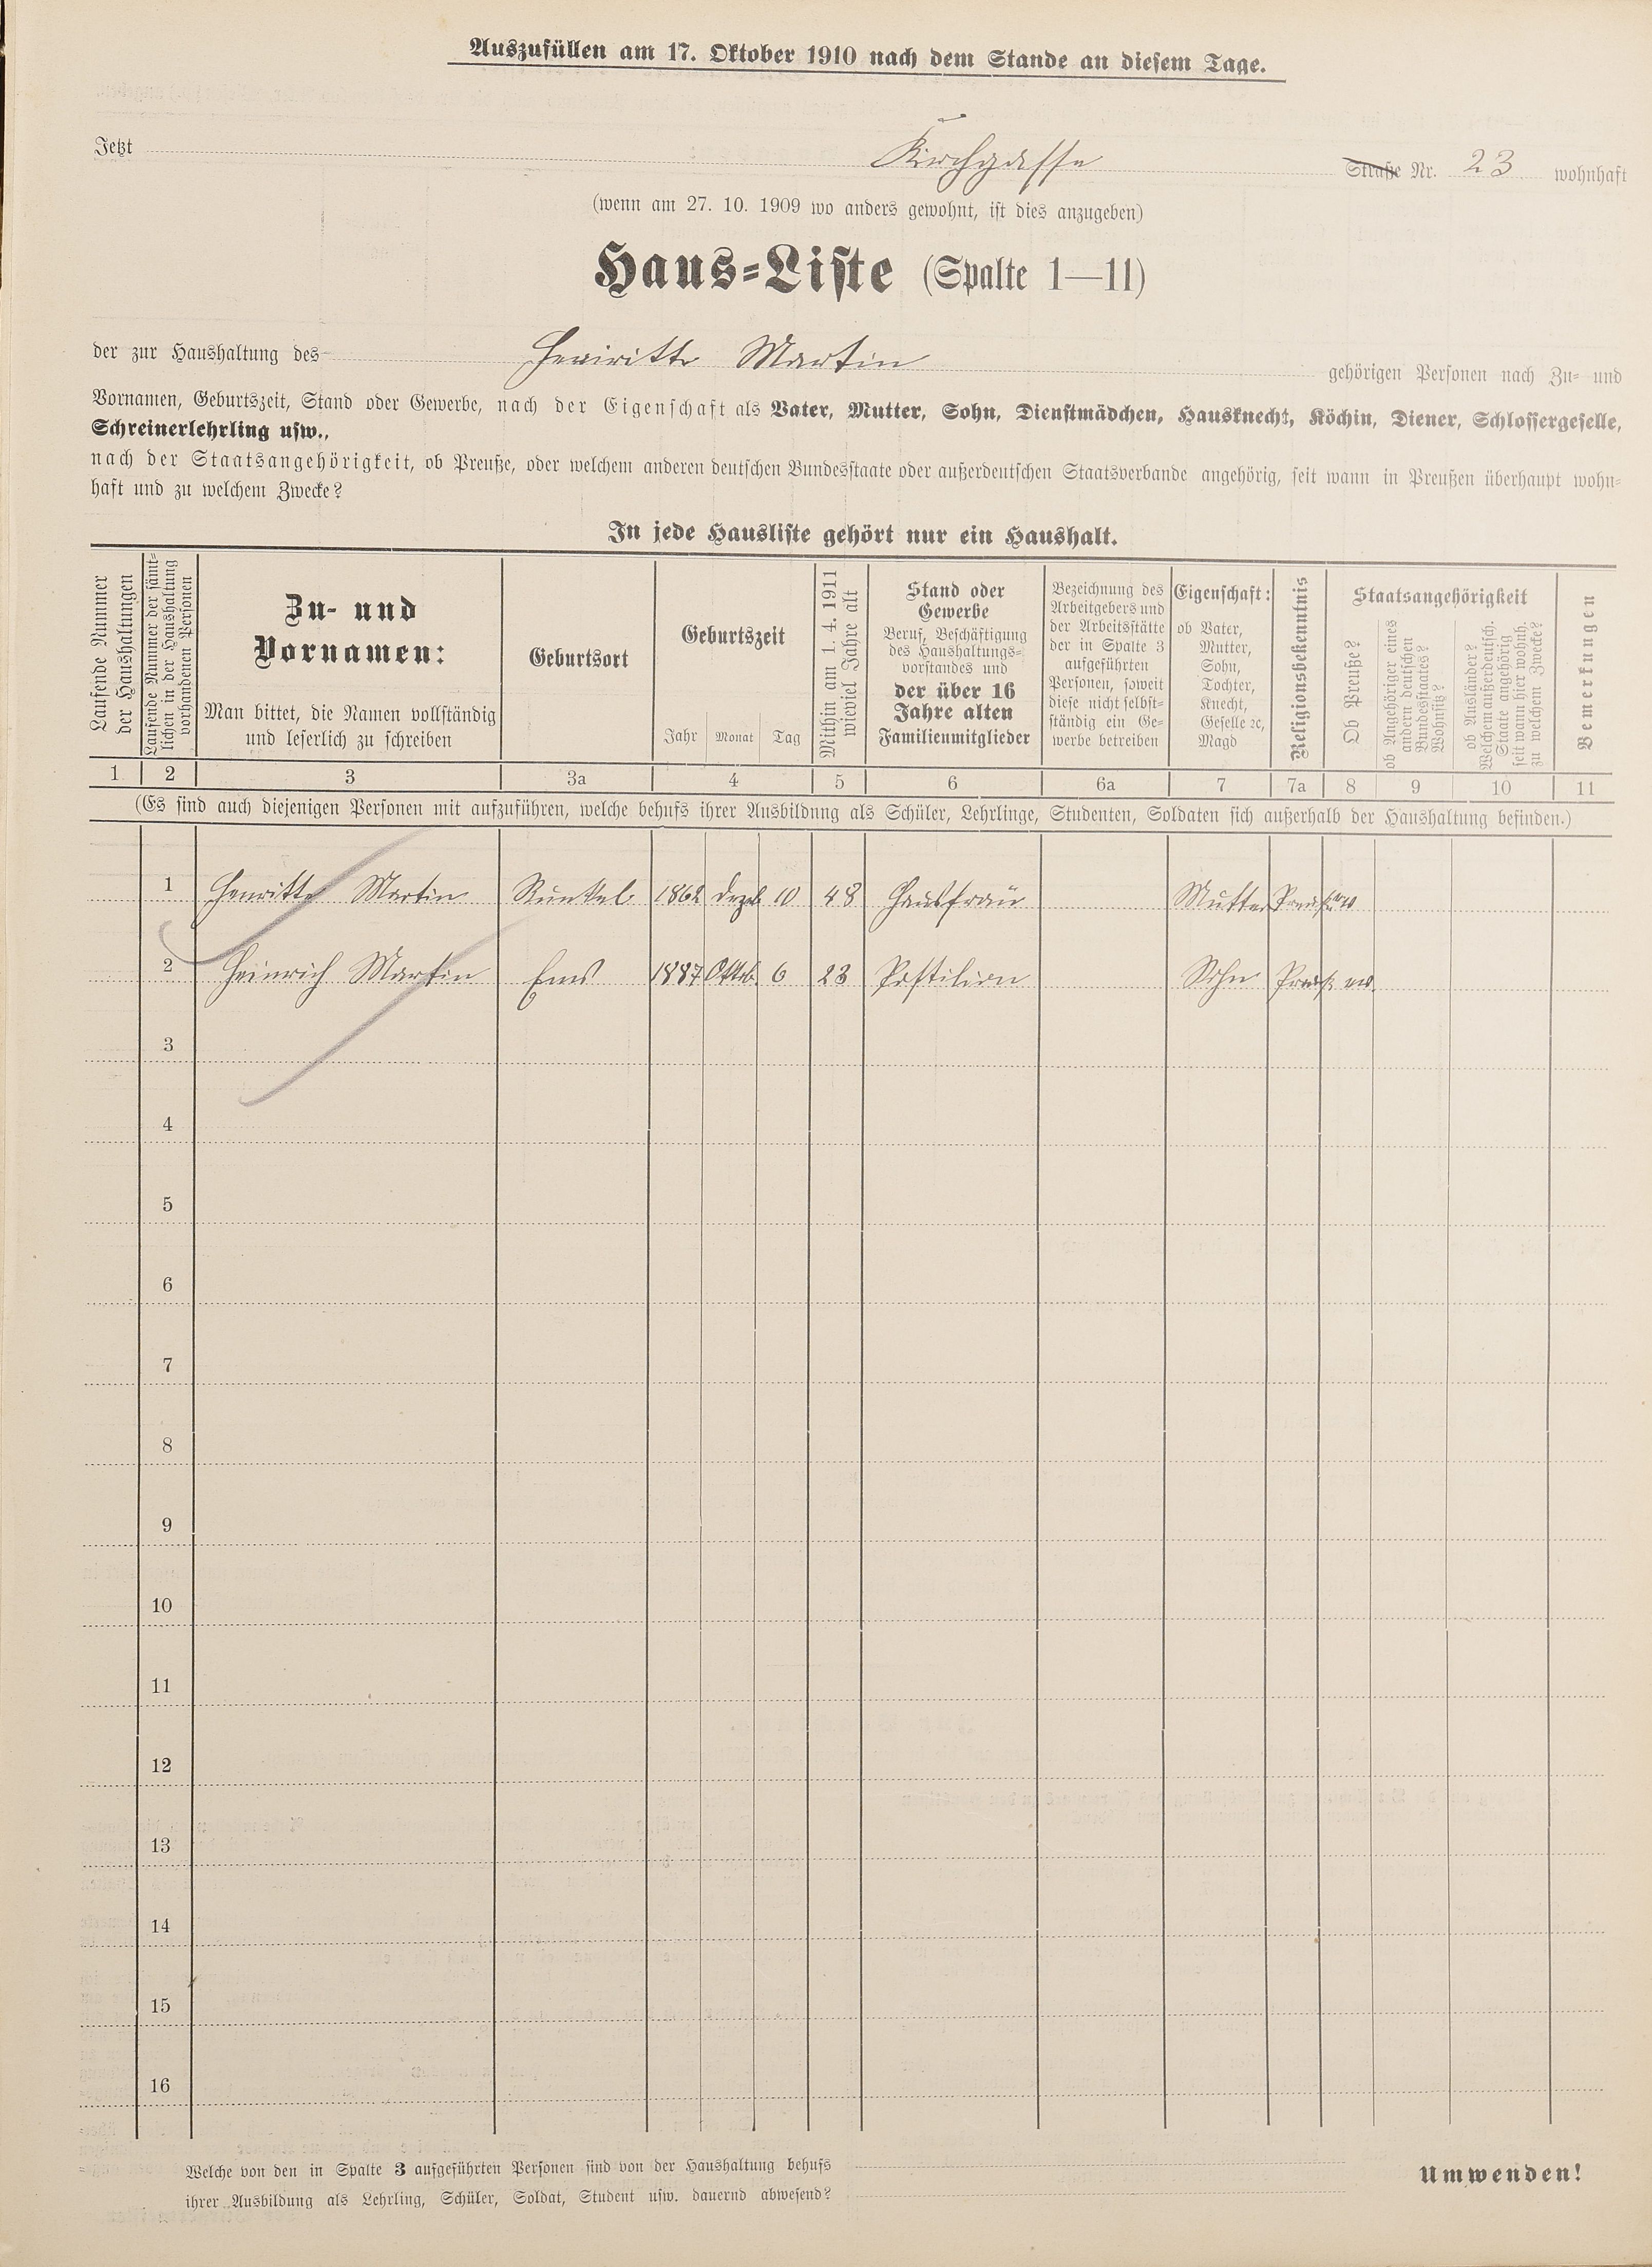 Auszufüllen am 17. Oktober 1910 nach dem Stande an diesem Tage.
Jetzt Kirchgasse Straße Nr. 23 wohnhaft
(wenn am 27. 10. 1909 wo anders gewohnt, ist dies anzugeben)
Haus-Liste (Spalte 1—11)
der zur Haushaltung des Henriette Martin gehörigen Personen nach Zu- und
Vornamen, Geburtszeit, Stand oder Gewerbe, nach der Eigenschaft als Vater, Mutter, Sohn, Dienstmädchen, Hausknecht, Köchin, Diener, Schlossergeselle,
Schreinerlehrling usw.,
nach der Staatsangehörigkeit, ob Preuße, oder welchem anderen deutschen Bundesstaate oder außerdeutschen Staatsverbande angehörig, seit wann in Preußen überhaupt wohn-
haft und zu welchem Zwecke?
In jede Hausliste gehört nur ein Haushalt.
Laufende Nummer
der Haushaltungen
Laufende Nummer der sämt-
lichen in der Haushaltung
vorhandenen Personen
Zu- und
Vornamen:
Man bittet, die Namen vollständig
und leserlich zu schreiben
Geburtsort
Geburtszeit
Jahr Monat Tag
Mithin am 1. 4. 1911
wieviel Jahre alt
Stand oder
Gewerbe
Beruf, Beschäftigung
des Haushaltungs-
vorstandes und
der über 16
Jahre alten
Familienmitglieder
Bezeichnung des
Arbeitgebers und
der Arbeitsstätte
der in Spalte 3
aufgeführten
Personen, soweit
diese nicht selbst-
ständig ein Ge-
werbe betreiben
Eigenschaft:
ob Vater,
Mutter,
Sohn,
Tochter,
Knecht,
Geselle ꝛc,
Magd
Religionsbekenntnis
Staatsangehörigkeit
Ob Preuße?
ob Angehöriger eines
andern deutschen
Bundesstaates?
Wohnsitz?
ob Ausländer?
Welchem außerdeutsch.
Staate angehörig
seit wann hier wohnh.
zu welchem Zwecke?
Bemerkungen
1 2 3 3a 4 5 6 6a 7 7a 8 9 10 11
(Es sind auch diejenigen Personen mit aufzuführen, welche behufs ihrer Ausbildung als Schüler, Lehrlinge, Studenten, Soldaten sich außerhalb der Haushaltung befinden.)
1 Henriette Martin Runkel 1862 Dezb 10 48 Hausfrau Mutter
2 Heinrich Martin Ems 1887 Oktb. 6 23 Postilion Sohn
3
4
5
6
7
8
9
10
11
12
13
14
15
16
Welche von den in Spalte 3 aufgeführten Personen sind von der Haushaltung behufs
ihrer Ausbildung als Lehrling, Schüler, Soldat, Student usw. dauernd abwesend?
Umwenden!